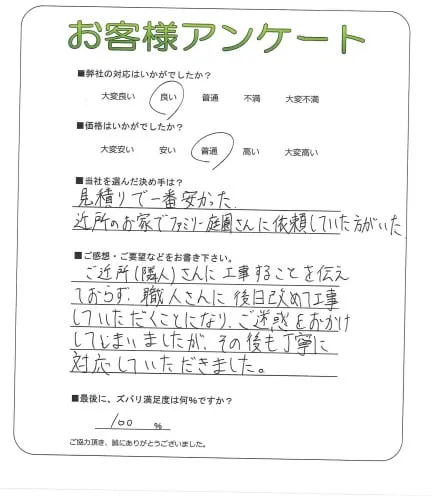 お客様アンケート
■弊社の対応はいかがでしたか？
大変良い 良い 普通 不満 大変不満
■価格はいかがでしたか？
大変安い 安い 普通 高い 大変高い
■当社を選んだ決め手は？
見積りで一番安かった.
近所のお家でファミリー庭園さんに依頼していた方がいた
■ご感想・ご要望などをお書き下さい。
ご近所(隣人)さんに工事することを伝え
ておらず、職人さんに後日改めて工事
していただくことになり、ご迷惑をおかけ
してしまいましたが、その後も丁寧に
対応していただきました。
■最後に、ズバリ満足度は何%ですか？
100 %
ご協力頂き、誠にありがとうございました。